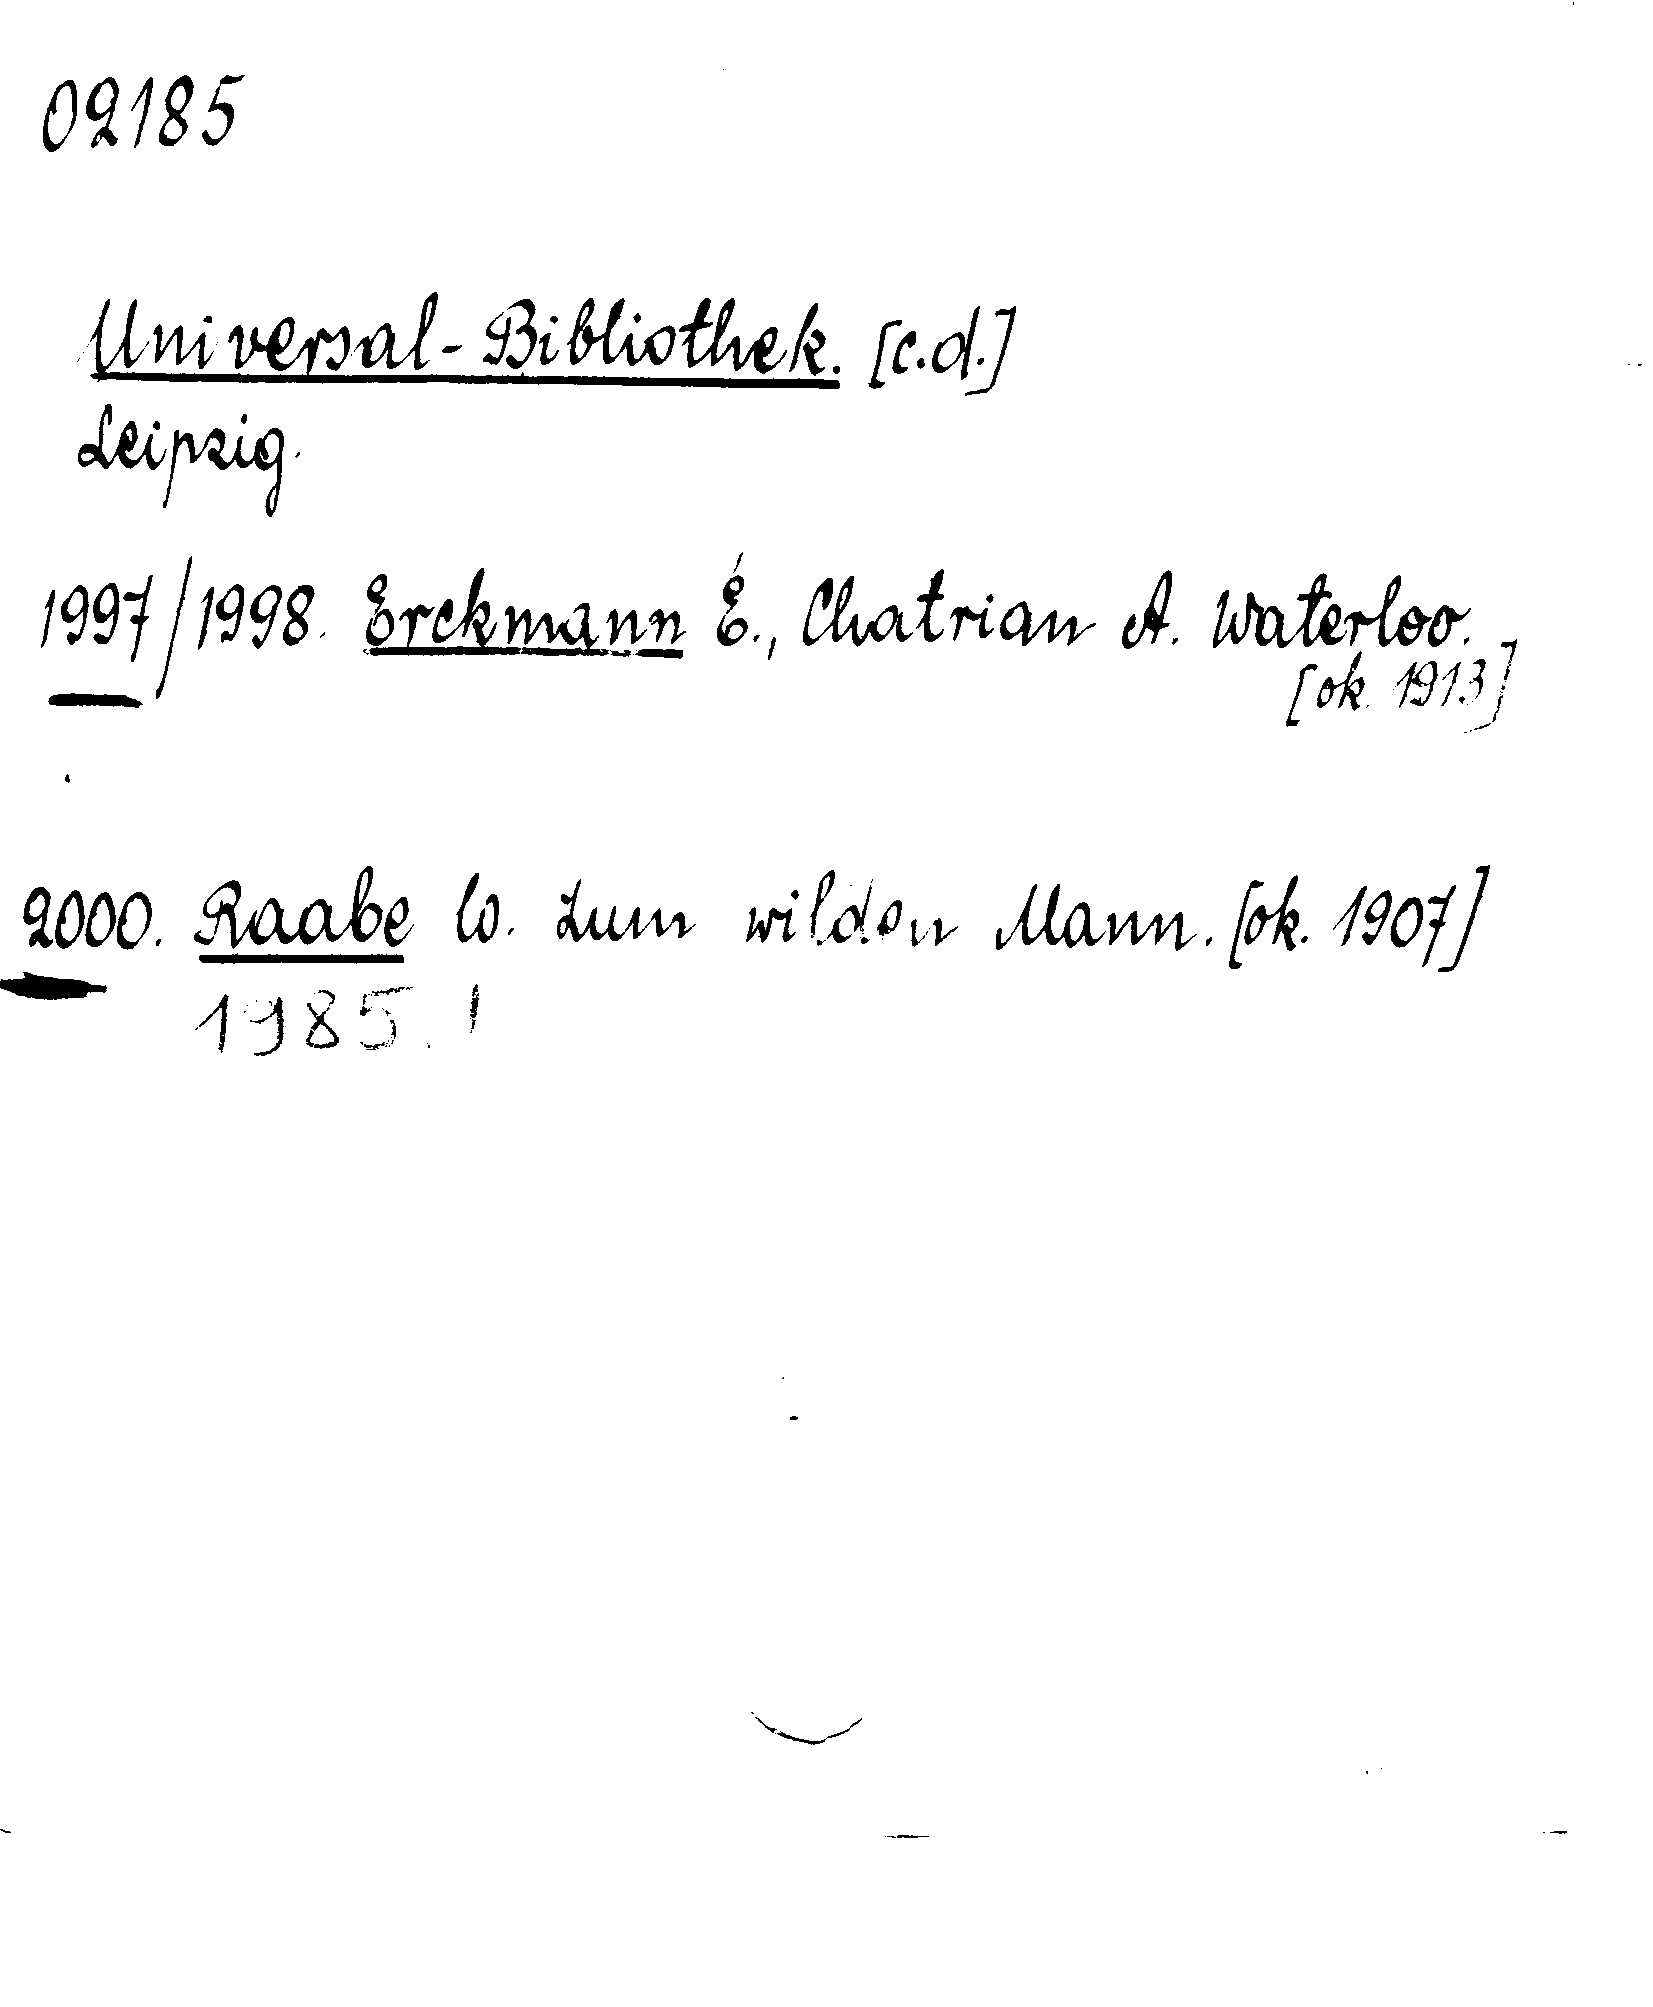 02185
Universal-Bibliothek. [c.d.]
Leipzig.
1997/1998. Erckmann É., Chatrian A. Waterloo.
[ok. 1913]
2000. Raabe W. Zum wilden Mann. [ok. 1907]
1985. !